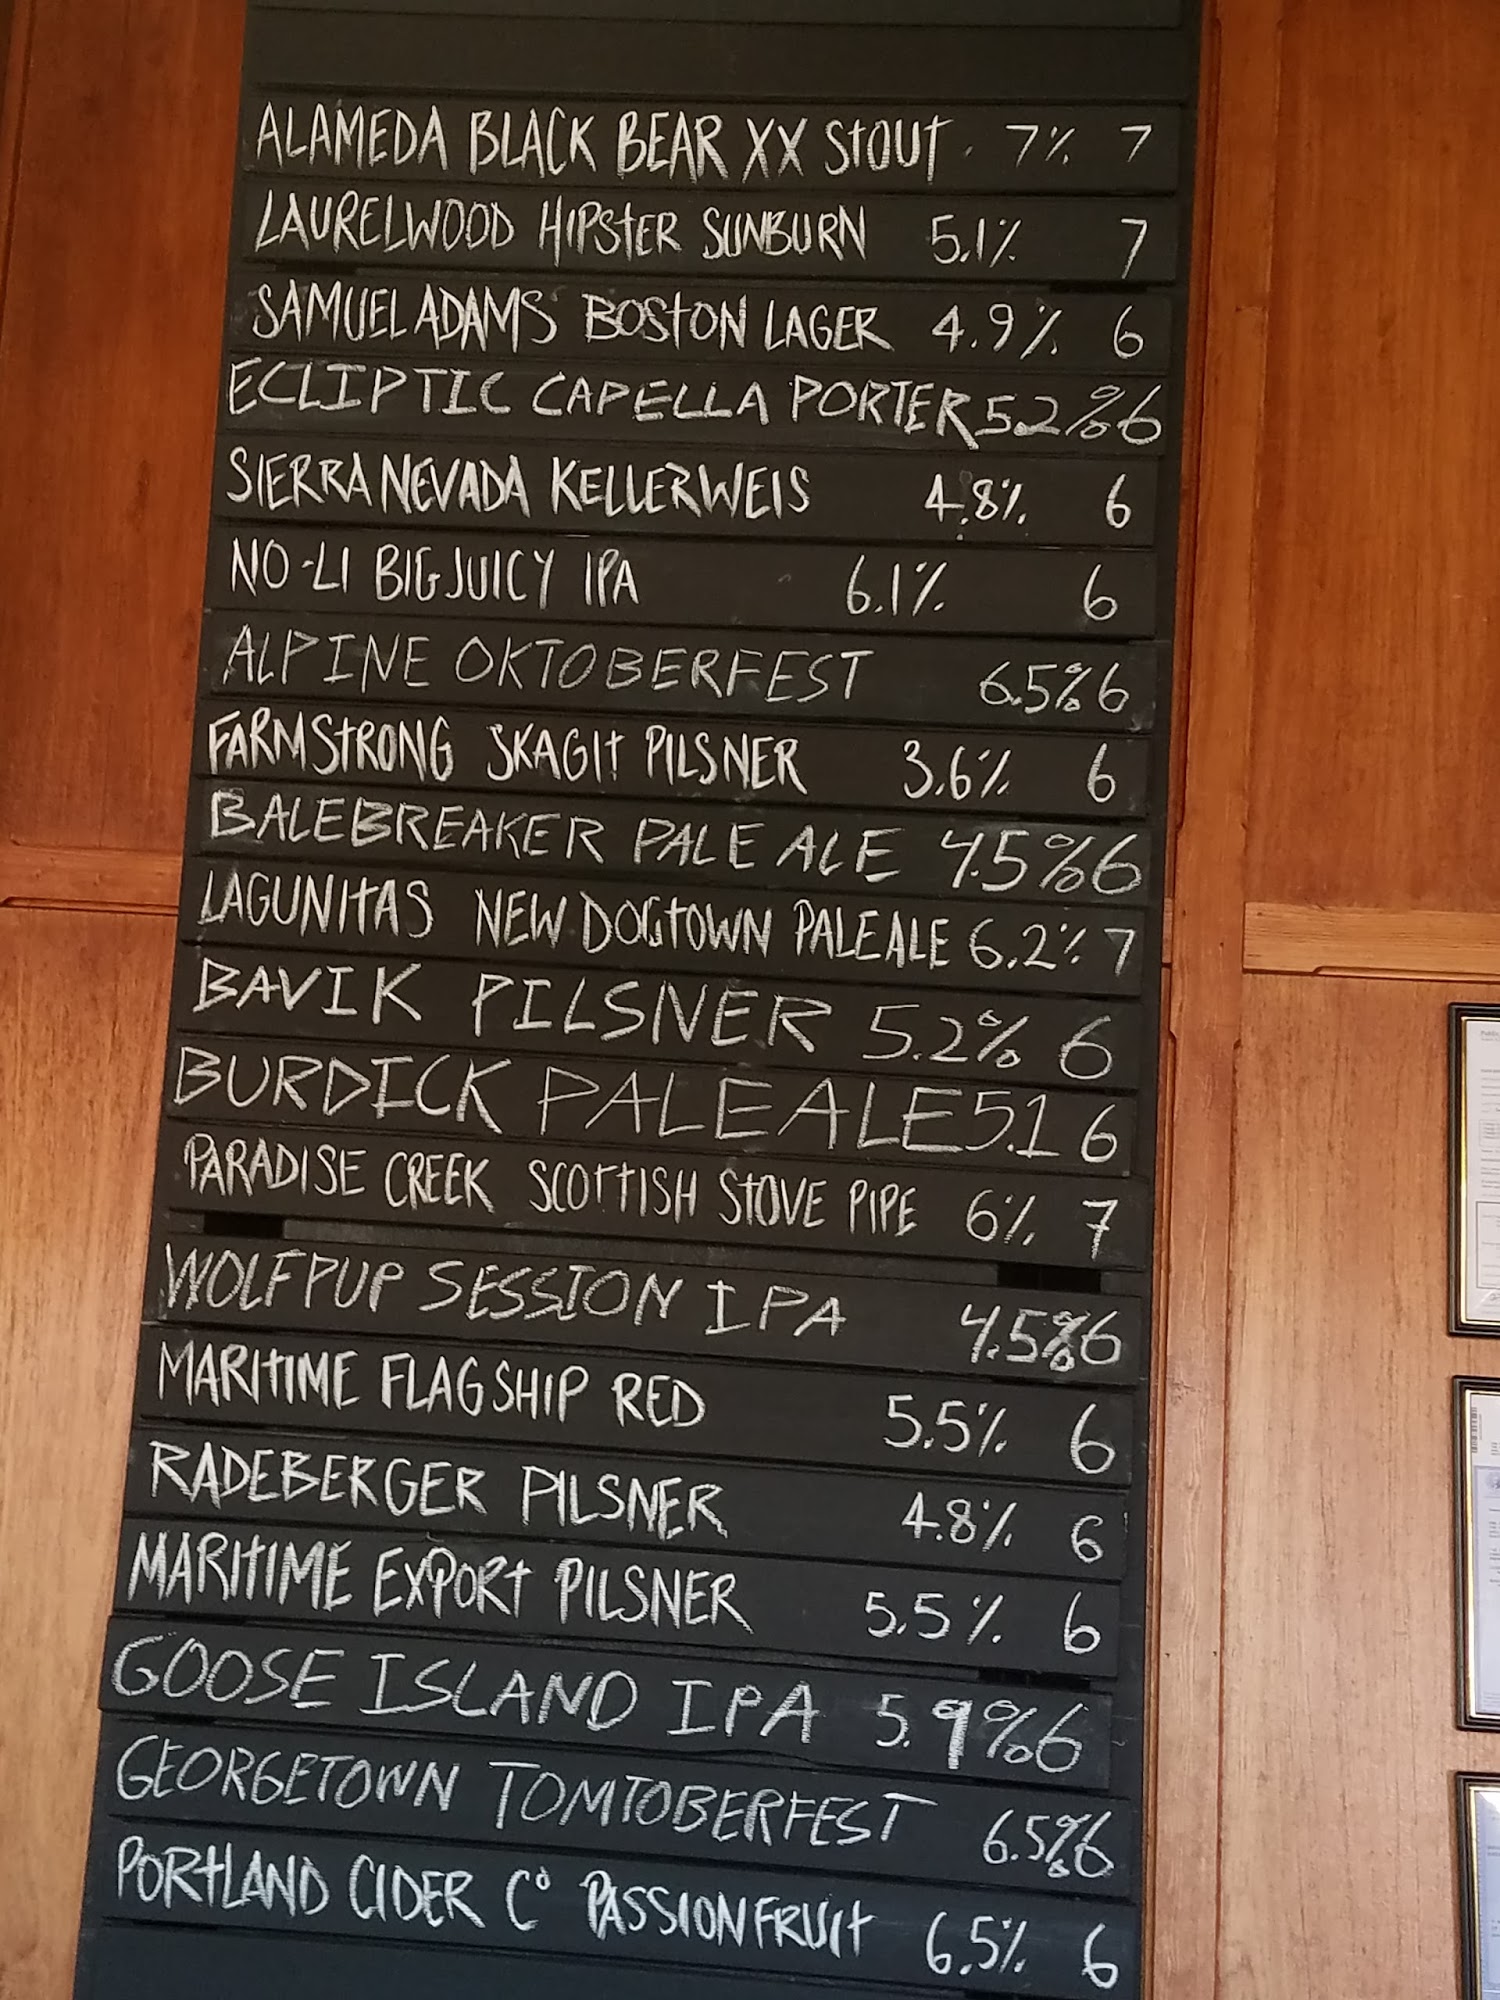 ALAMEDA BLACK BEAR XX STOUT 7% 7
LAURELWOOD HIPSTER SUNBURN 5.1% 7
SAMUEL ADAMS BOSTON LAGER 4.9% 6
ECLIPTIC CAPELLA PORTER 5.2% 6
SIERRA NEVADA KELLERWEIS 4.8% 6
NO-LI BIG JUICY IPA 6.1% 6
ALPINE OKTOBERFEST 6.5% 6
FARMSTRONG SKAGIT PILSNER 3.6% 6
BALEBREAKER PALE ALE 4.5% 6
LAGUNITAS NEW DOGTOWN PALE ALE 6.2% 7
BAVIK PILSNER 5.2% 6
BURDICK PALE ALE 5.1 6
PARADISE CREEK SCOTTISH STOVE PIPE 6% 7
WOLFPUP SESSION IPA 4.5% 6
MARITIME FLAGSHIP RED 5.5% 6
RADEBERGER PILSNER 4.8% 6
MARITIME EXPORT PILSNER 5.5% 6
GOOSE ISLAND IPA 5.9% 6
GEORGETOWN TOMTOBERFEST 6.5% 6
PORTLAND CIDER Cº PASSIONFRUIT 6.5% 6